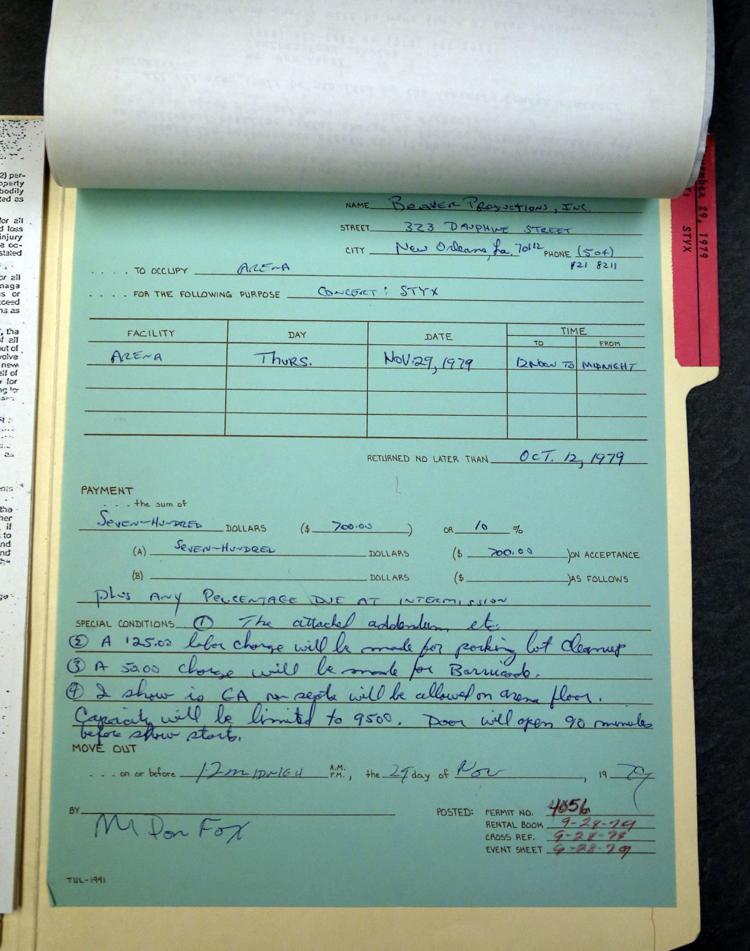 NAME BEAVER PRODUCTIONS, INC.
STREET 323 DAUPHINE STREET
CITY New Orleans, La. 70112 PHONE (504)
821 8211
. . . . TO OCCUPY ARENA
. . . . FOR THE FOLLOWING PURPOSE CONCERT: STYX
FACILITY DAY DATE TIME
TO FROM
ARENA THURS. NOV. 29, 1979 12 NOON TO MIDNIGHT
RETURNED NO LATER THAN OCT. 12, 1979
PAYMENT
. . . . the sum of
SEVEN-HUNDRED DOLLARS ($ 700.00 ) OR 10 %
(A) SEVEN-HUNDRED DOLLARS ($ 700.00 )ON ACCEPTANCE
(B) DOLLARS ($ )AS FOLLOWS
plus ANY PERCENTAGE DUE AT INTERMISSION
SPECIAL CONDITIONS ① The attached addendum etc.
② A 125.00 labor charge will be made for parking lot cleanup
③ A 50.00 charge will be made for Barricade.
④ If show is GA no seats will be allowed on arena floor.
Capacity will be limited to 9500. Door will open 90 minutes
before show starts.
MOVE OUT
. . . . on or before 12 MIDNIGH A.M. P.M., the 29 day of Nov , 19 79
BY
Don Fox
POSTED: PERMIT NO. 4056
RENTAL BOOK 9-28-79
CROSS REF. 9-28-79
EVENT SHEET 9-28-79
TUL-1991
29, 1979
STYX